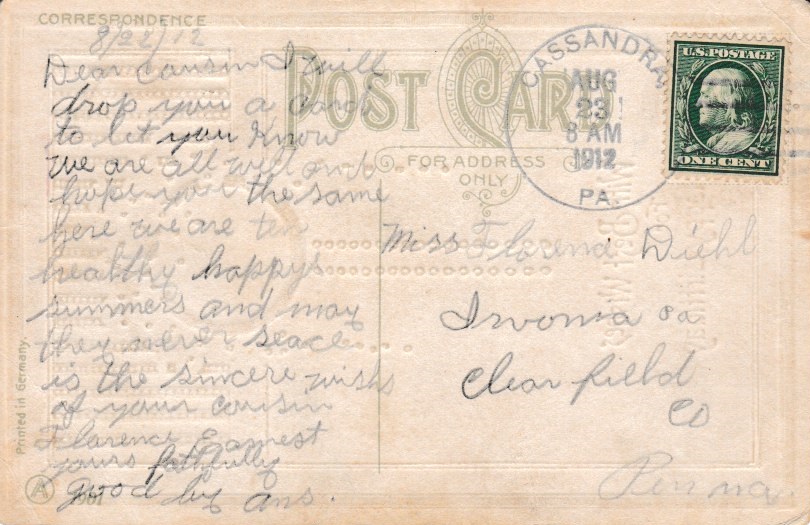 CORRESPONDENCE
8/22/12
Dear cousin I will
drop you a card
to let you know
we are all well and
hope you the same
here we are ten
healthy happys
summers and may
they never seace
is the sincere wish
of your cousin
Florence Earnest
yours faithfully
good by ans.
POST CARD
FOR ADDRESS
ONLY
CASSANDRA
AUG
23
8 AM
1912
PA.
U.S. POSTAGE
ONE CENT
Miss Diehl
Irvona Pa
Clearfield
Co
Penna.
Printed in Germany.
A